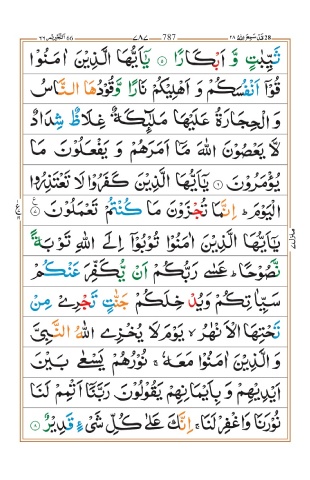 ثَيِّبٰتٍ وَّ اَبْكَارًا ۝۵ يٰۤاَيُّهَا الَّذِيْنَ اٰمَنُوْا
قُوْۤا اَنْفُسَكُمْ وَ اَهْلِيْكُمْ نَارًا وَّقُوْدُهَا النَّاسُ
وَ الْحِجَارَةُ عَلَيْهَا مَلٰٓىِٕكَةٌ غِلَاظٌ شِدَادٌ
لَّا يَعْصُوْنَ اللّٰهَ مَاۤ اَمَرَهُمْ وَ يَفْعَلُوْنَ مَا
يُؤْمَرُوْنَ ۝۶ يٰۤاَيُّهَا الَّذِيْنَ كَفَرُوْا لَا تَعْتَذِرُوا
الْيَوْمَ ؕ اِنَّمَا تُجْزَوْنَ مَا كُنْتُمْ تَعْمَلُوْنَ ۝۷
يٰۤاَيُّهَا الَّذِيْنَ اٰمَنُوْا تُوْبُوْۤا اِلَى اللّٰهِ تَوْبَةً
نَّصُوْحًا ؕ عَسٰى رَبُّكُمْ اَنْ يُّكَفِّرَ عَنْكُمْ
سَيِّاٰتِكُمْ وَيُدْخِلَكُمْ جَنّٰتٍ تَجْرِيْ مِنْ
تَحْتِهَا الْاَنْهٰرُ ۙ يَوْمَ لَا يُخْزِي اللّٰهُ النَّبِيَّ
وَ الَّذِيْنَ اٰمَنُوْا مَعَهٗ ۚ نُوْرُهُمْ يَسْعٰى بَيْنَ
اَيْدِيْهِمْ وَ بِاَيْمَانِهِمْ يَقُوْلُوْنَ رَبَّنَاۤ اَتْمِمْ لَنَا
نُوْرَنَا وَاغْفِرْ لَنَا ۚ اِنَّكَ عَلٰى كُلِّ شَيْءٍ قَدِيْرٌ ۝۸